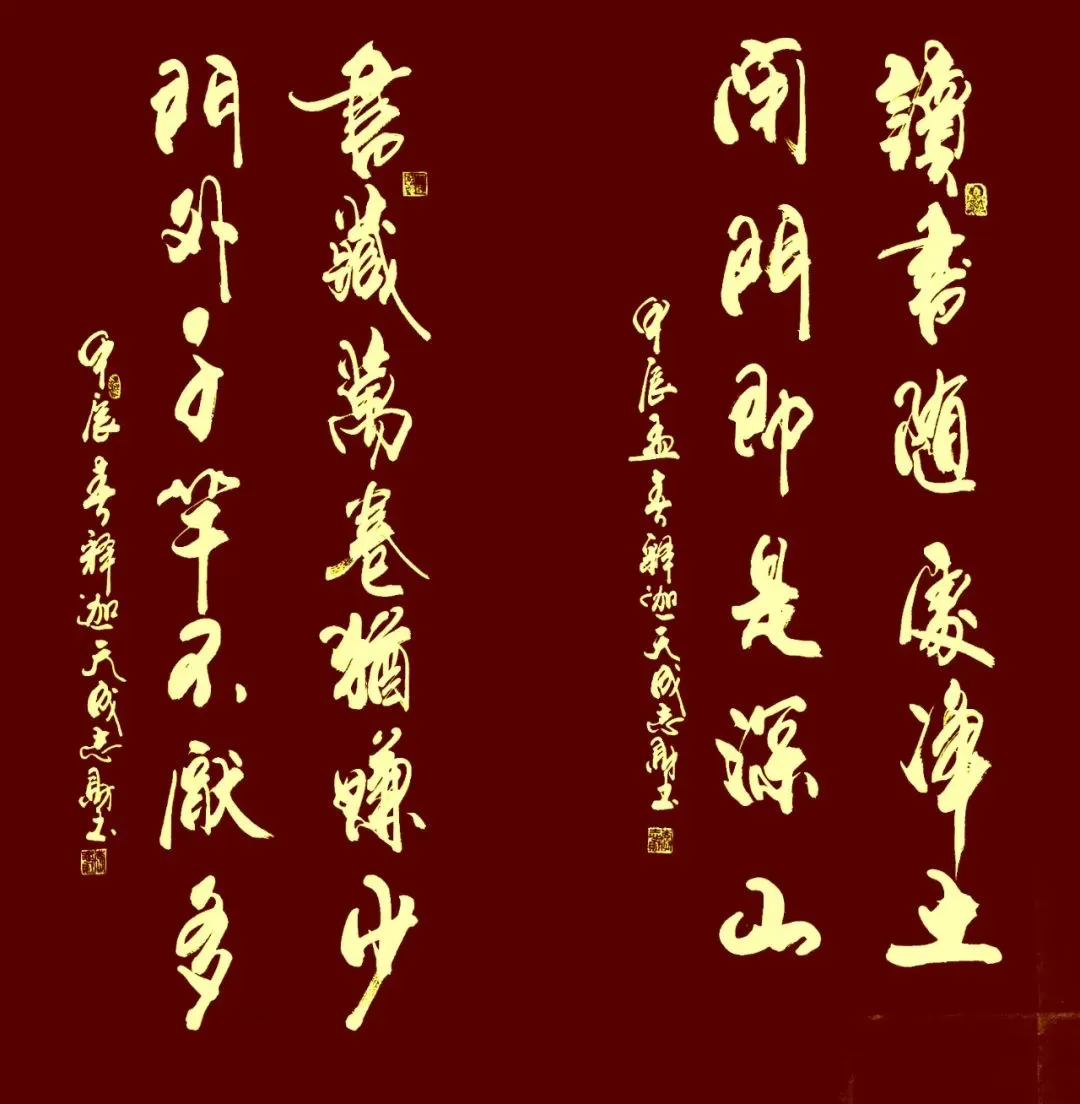 讀書隨處净土
閉門即是深山
甲辰孟春釋迦天成志剛書
書藏萬卷猶嫌少
門外千竿不厭多
甲辰春釋迦天成志剛書